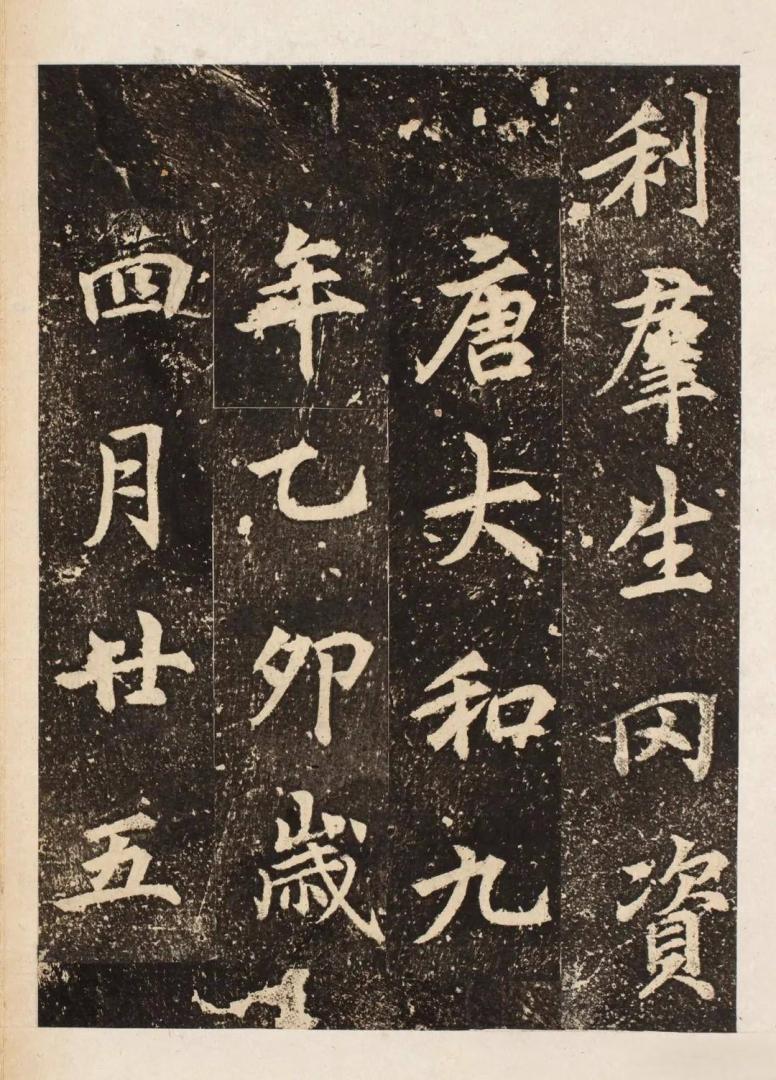 利羣生罔資
唐大和九
年乙卯歲
四月廿五